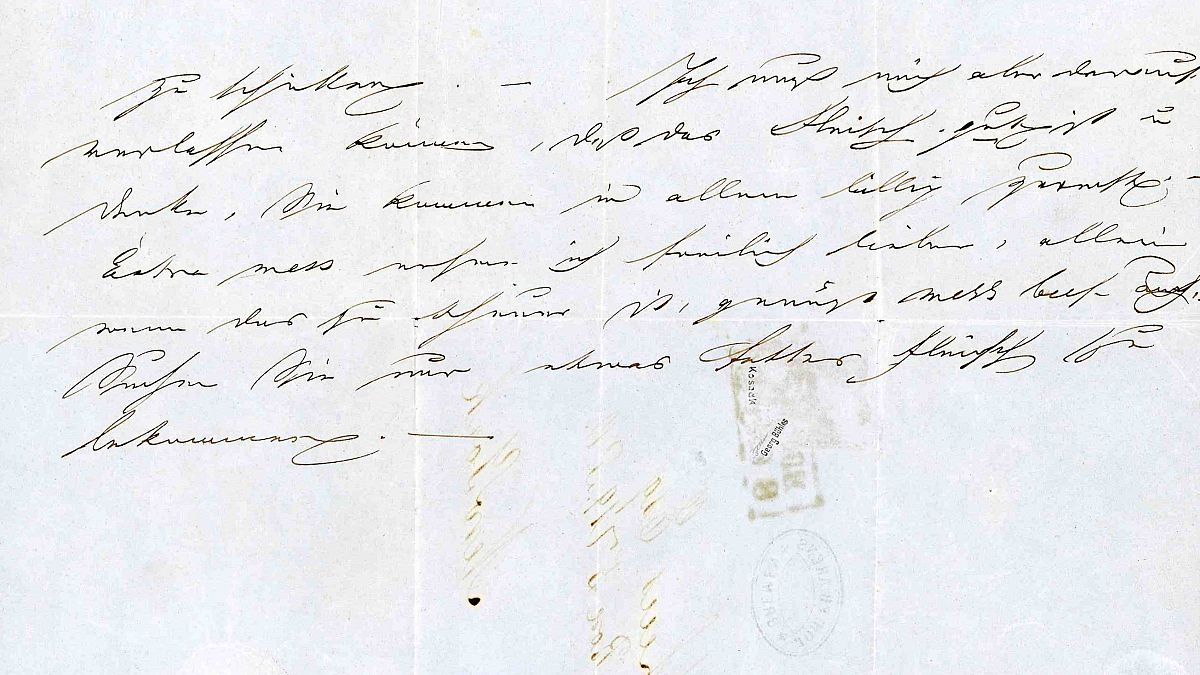 zu schicken. — Ich muß mich aber darauf
verlassen können, daß das Fleisch gut ist u
denke, Sie kommen in allem billig zurecht; –
Extra mess nehme ich freilich lieber, allein
wenn das zu theuer ist, genügt mess beef
Suchen Sie nur etwas fettes Fleisch zu
bekommen. —
Kosack
Georg Bühler
8